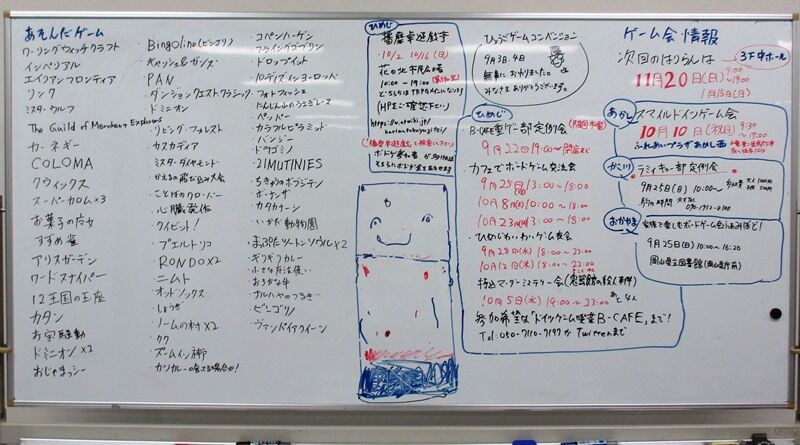 あそんだゲーム
ワーリングウィッチクラフト
インペリアル
エイリアンフロンティア
リンク
ミスターウルフ
The Guild of Merchant Explorers
カーネギー
COLOMA
クウィックス
スーパーカロム×3
お菓子のチカ
すずめ雀
アリスガーデン
ワードスナイパー
12王国の玉座
カタン
お宝騒動
ドミニオン×2
おじゃまっシー
・Bingolino(ビンゴリノ)
・キャッシュ&ガンズ
・PAN
・ダンジョンクエストクラシック
・ドミニオン
・リビング・フォレスト
・カスカディア
・ミスターダイヤモンド
・かえるの飛び込み大会
・ことばのクローバー
・心臓発作
・クイビット!
・プエルトリコ
・RONDO×2
・ニムト
・オッドソックス
・しょうぎ
・ノームの村×2
・ククク
・ズームイン
・カツカレーの食えない場合が!
・コペンハーゲン
・フライングゴブリン
・ドロップイット
・10デイズインヨーロッパ
・フォトフィッシュ
・にんじんのうさぎレース
・ペッパー
・カラフルピラミッド
・バンジー
・ドラゴミノ
・21MUTINIES
・ちきゅうのボブジテン
・ボーナンザ
・カタカナーシ
・いかだ動物園
・まぷたツートンソウル×2
・ギリギリカレー
・小さな魔法使い
・おろかな牛
・ナルハヤのつるぎ
・ビンゴリノ
・ヴァンパイアクイーン
ひめじ
播磨卓遊戯
・10/2、10/16(日)
花の北市民広場
10:00~19:00
どちらもTRPGメインになります
(HPをご確認下さい)
「播磨卓遊戯」で検索して下さい
ひょうごゲームコンベンション
9月3日・4日
無事におわりました。
みなさまありがとうございます。
ひめじ
・B-CAFE重ゲー部定例会
9月22日19:00~閉店まで
・カフェでボードゲーム交流会
9月25日(日)13:00~18:00
10月8日(土)10:00~18:00
10月23日(日)13:00~18:00
・ひめじわいわいゲーム夜会
9月28日(水)18:00~22:00
10月12日(水)18:00~22:00
・持込マーダーミステリー会
10月5日(水)19:00~23:00 あと4人
参加希望は「ドイツゲーム喫茶B-CAFE」まで!
Tel:050-7110-7197か Twitterまで
ゲーム会情報
次回のはりらんは 3F中ホール
11月20日(日) 9:00~19:00
1月15日(日)
あかし
スマイルドインゲーム会
10月10日(祝月) 9:30~19:00
ふれあいプラザあかし西
かこがわ
ラミィキューブ部定例会
9月25日(日)10:00~
おかやま
家族で楽しむボードゲームひろめほど!
9月25日(日)10:00~16:20
岡山県立図書館(岡山県庁前)